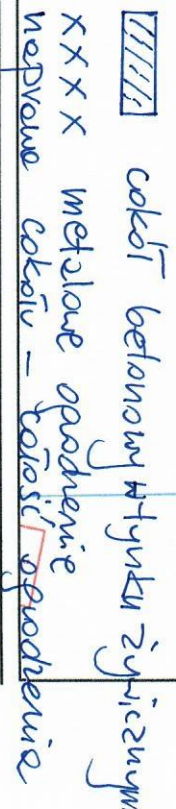 cokół betonowy w tynku żywicznym
xxxx metalowe ogrodzenie
naprawa cokołu – całość ogrodzenia